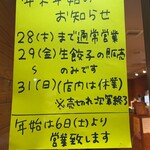 年末年始の
お知らせ
28(木)まで通常営業
29(金)生餃子の販売
のみです
31(日)(店内は休業)
※売り切れ次第終了
年始は6日(土)より
営業致します